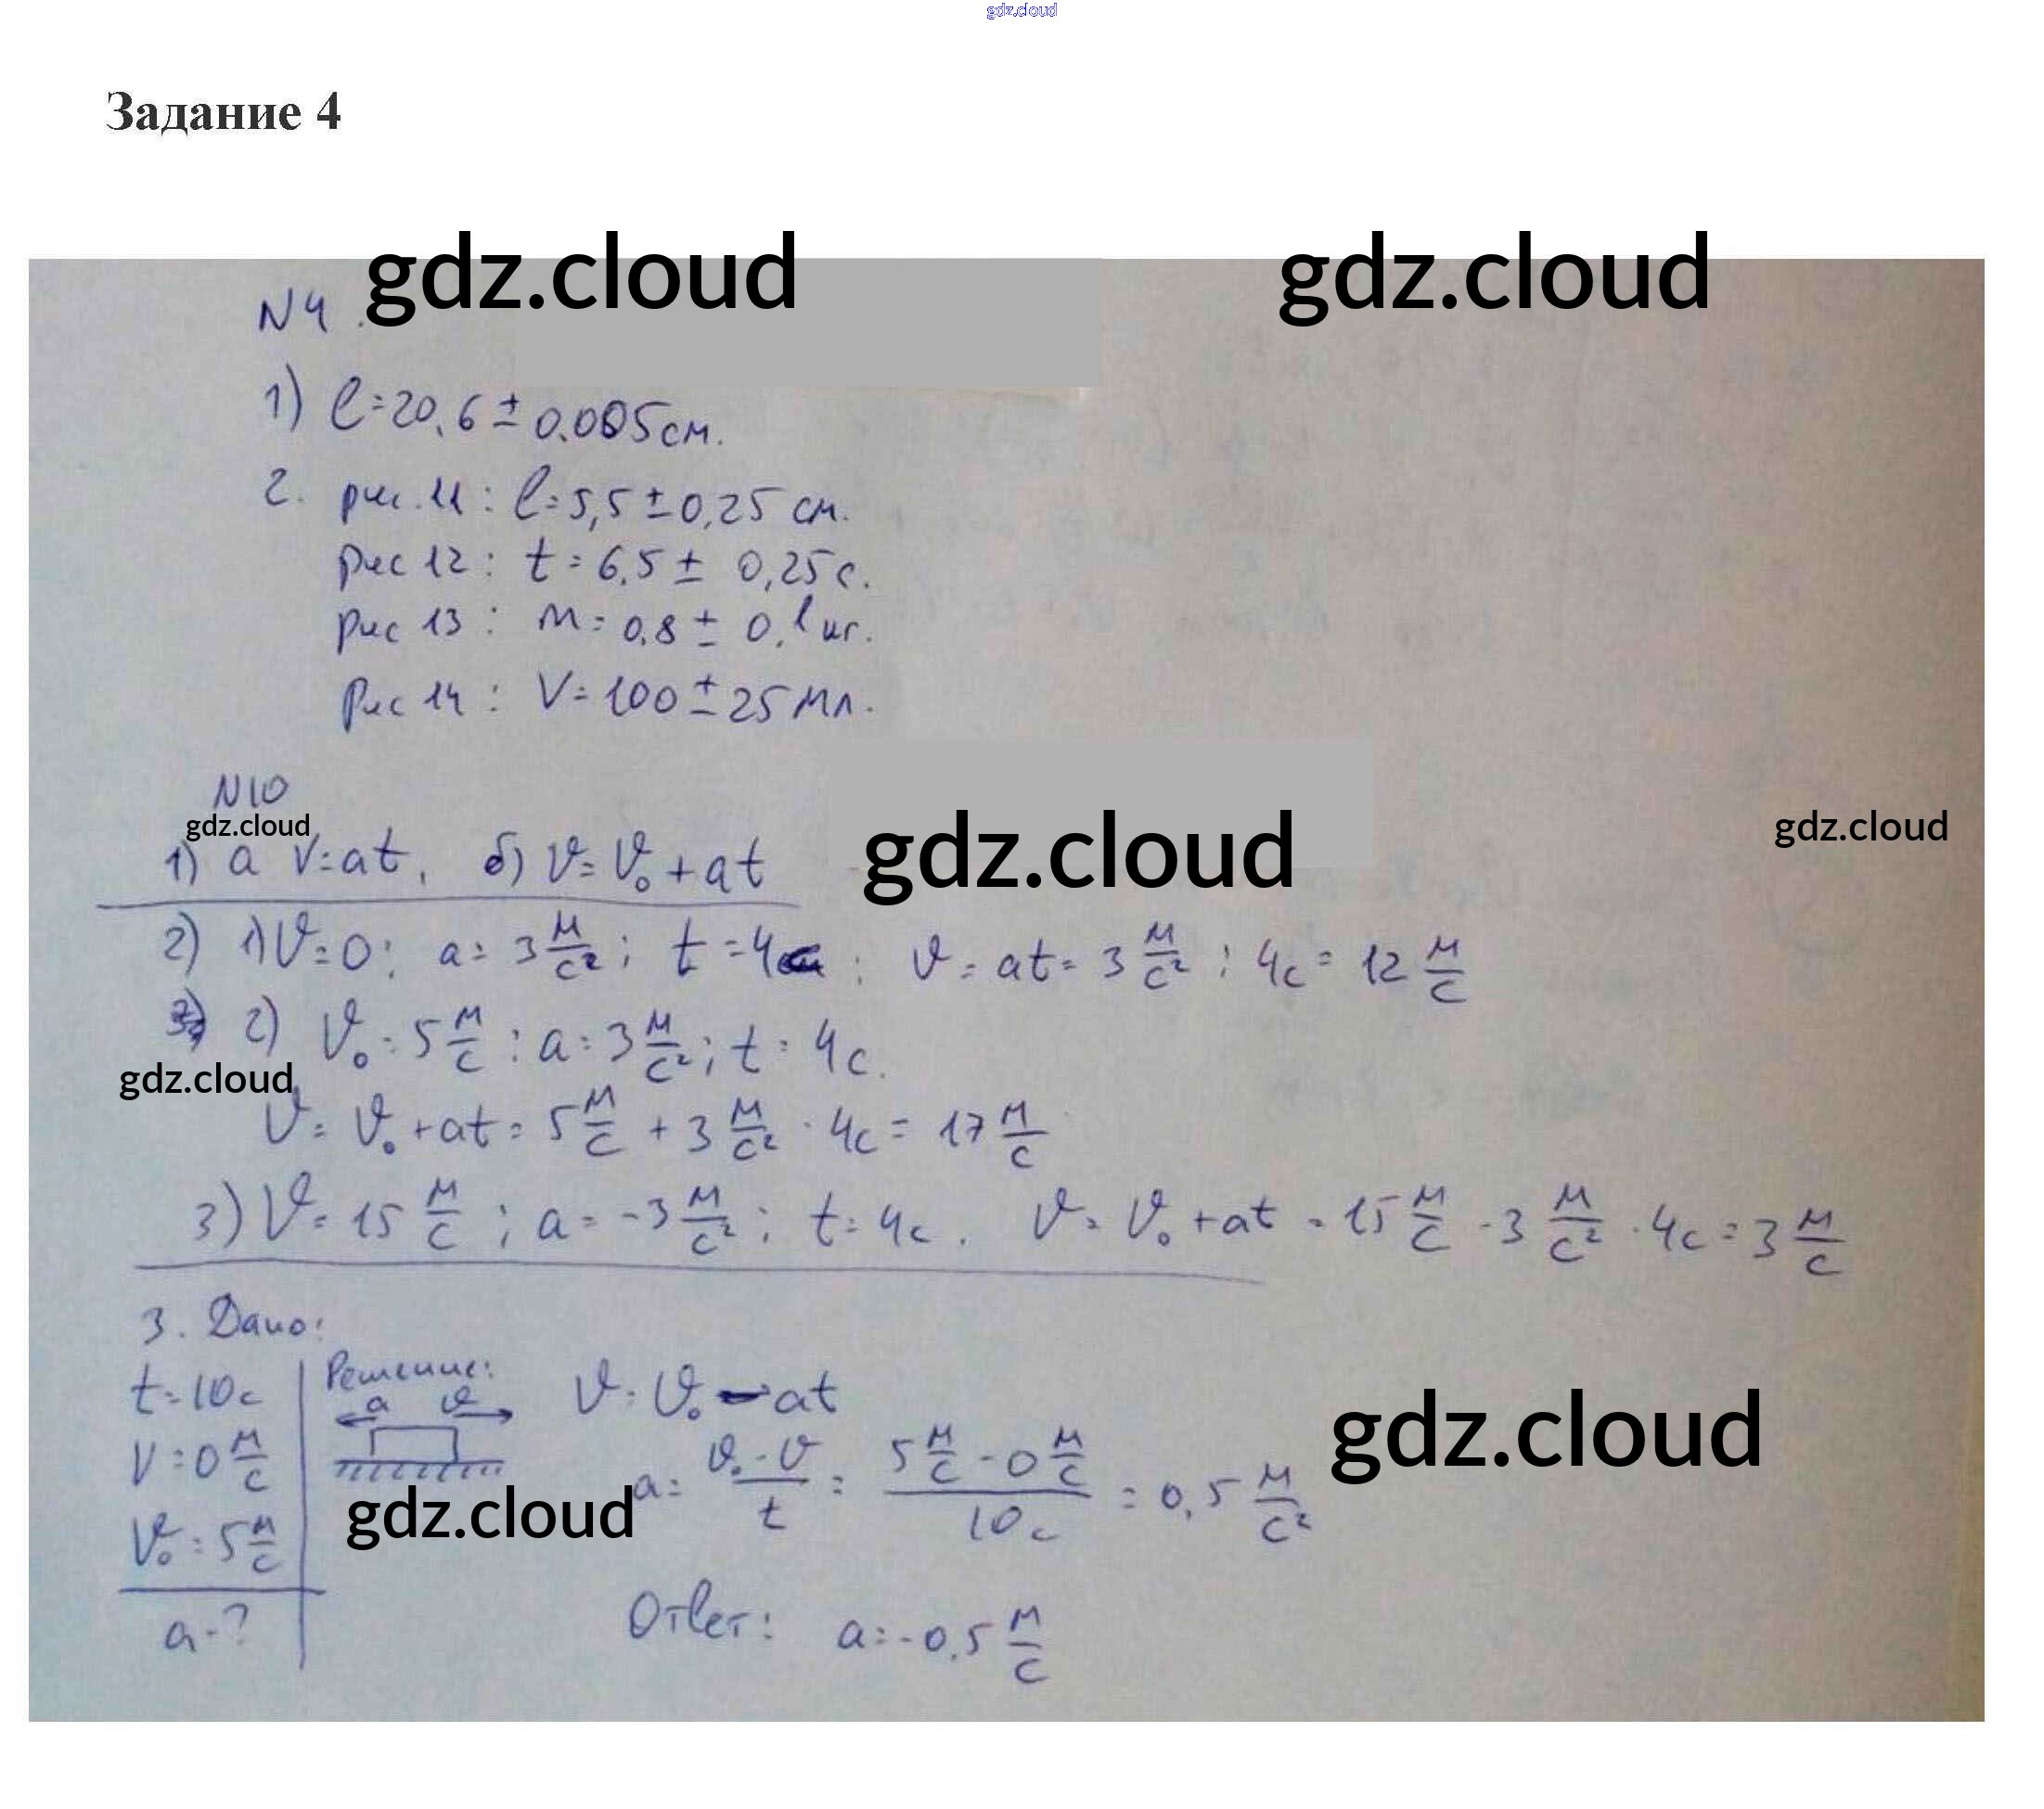 gdz.cloud
Задание 4
gdz.cloud gdz.cloud
N4.
1) l=20,6 ± 0,005 см.
2. рис. 11: l=5,5 ± 0,25 см.
рис 12: t = 6,5 ± 0,25 с.
рис 13: m = 0,8 ± 0,1 кг.
Рис 14: V = 100 ± 25 мл.
N10
gdz.cloud gdz.cloud gdz.cloud
1) а V=at, б) v=v₀+at
2) 1) v=0; a=3 м/с²; t=4с; v=at=3 м/с² : 4с = 12 м/с
2) v₀=5 м/с; a=3 м/с²; t=4с.
gdz.cloud
v=v₀+at=5 м/с + 3 м/с² · 4с = 17 м/с
3) v=15 м/с; a=-3 м/с²; t=4с. v=v₀+at=15 м/с - 3 м/с² · 4с = 3 м/с
3. Дано:
t=10с
V=0 м/с
v₀=5 м/с
a-?
Решение:
a v
v=v₀-at
gdz.cloud
a = (v₀-v)/t = (5 м/с - 0 м/с)/10с = 0,5 м/с²
gdz.cloud
Ответ: a=-0,5 м/с